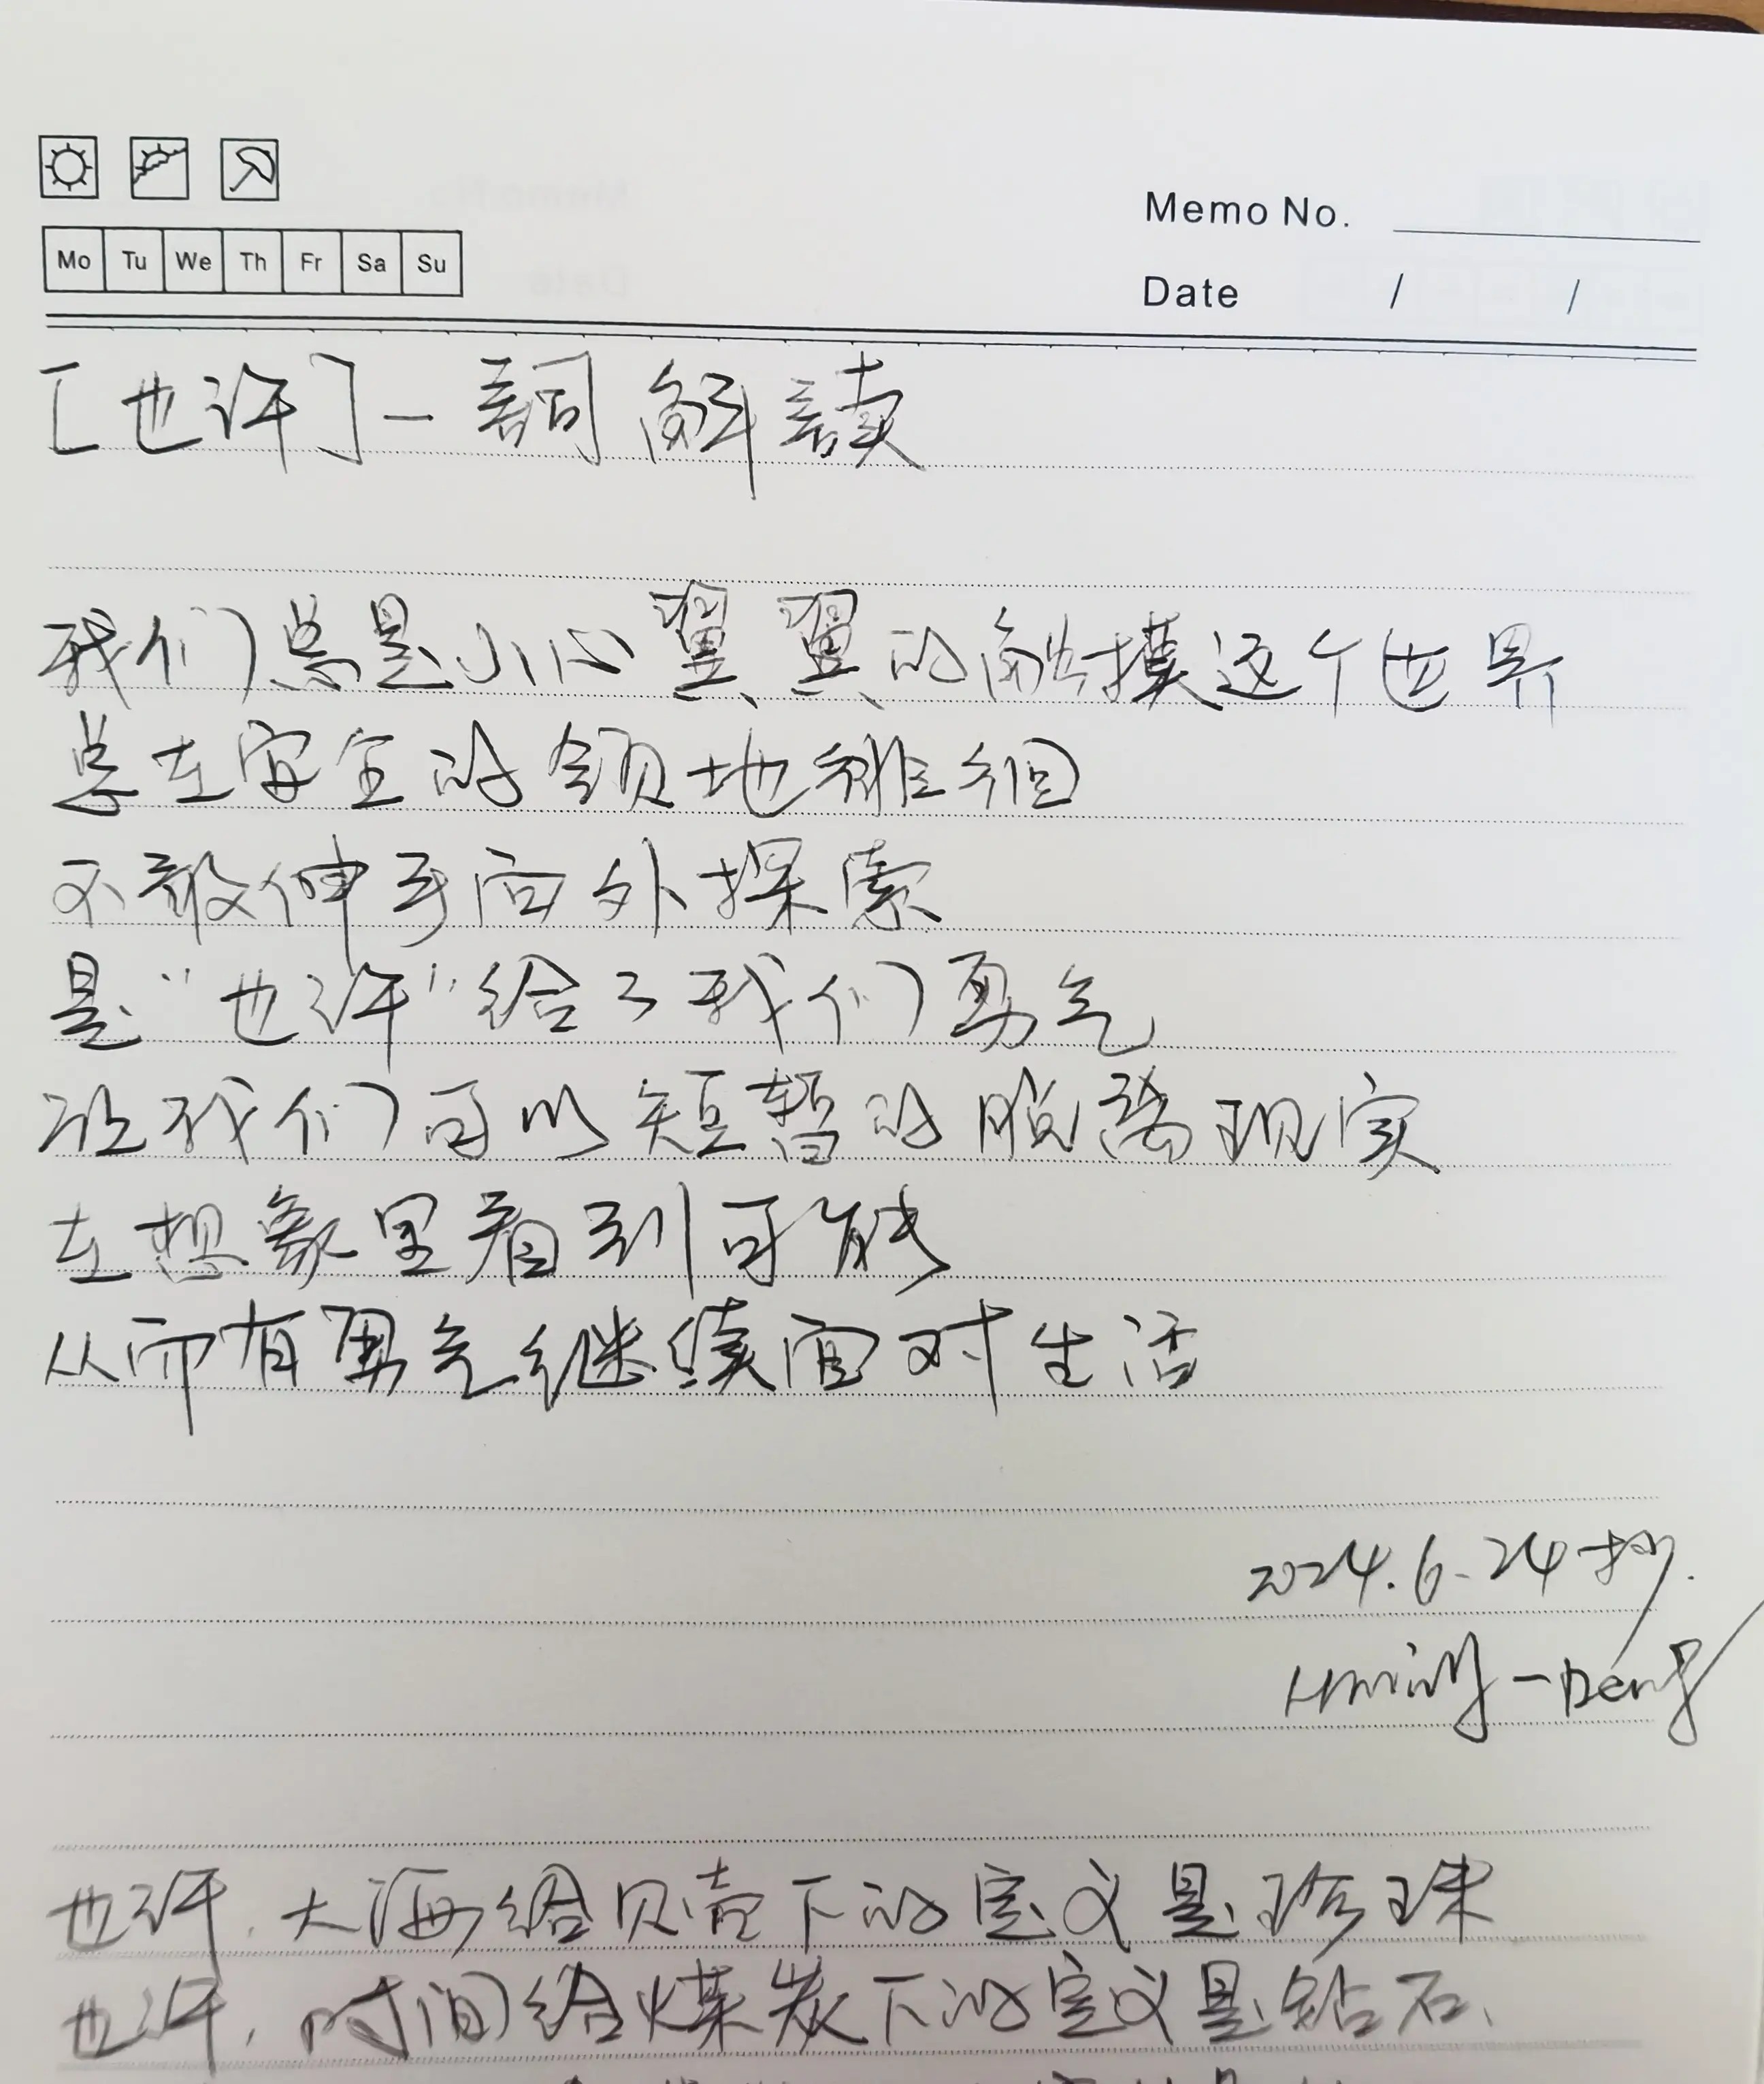 Memo No.
Mo Tu We Th Fr Sa Su
Date / /
[也许]一詞解讀
我们总是小心翼翼的触摸这个世界
总在安全的领地徘徊
不敢伸手向外探索
是“也许”给了我们勇气
让我们可以短暂的脱离现实
在想象里看到可能
从而有勇气继续面对生活
2024.6.24抄.
-Deng
也许,大海给贝壳下的定义是珍珠
也许,时间给煤炭下的定义是钻石、